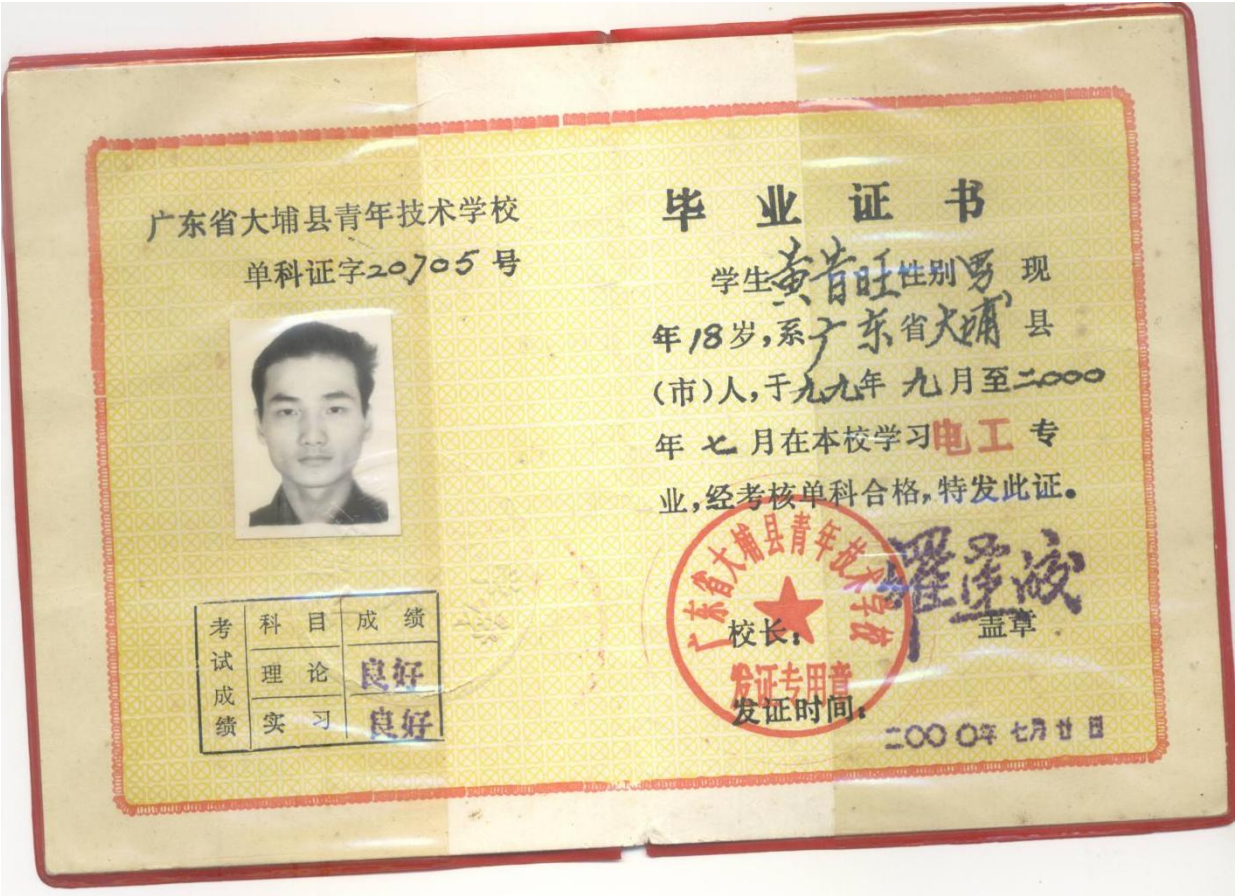 广东省大埔县青年技术学校
单科证字20705号
考试成绩
科目 成绩
理论 良好
实习 良好
毕业证书
学生黄昔旺性别男现
年18岁,系广东省大埔县
(市)人,于九九年九月至二000
年七月在本校学习电工专
业,经考核单科合格,特发此证。
广东省大埔县青年技术学校
发证专用章
校长: 盖章
发证时间:
二000年七月廿日